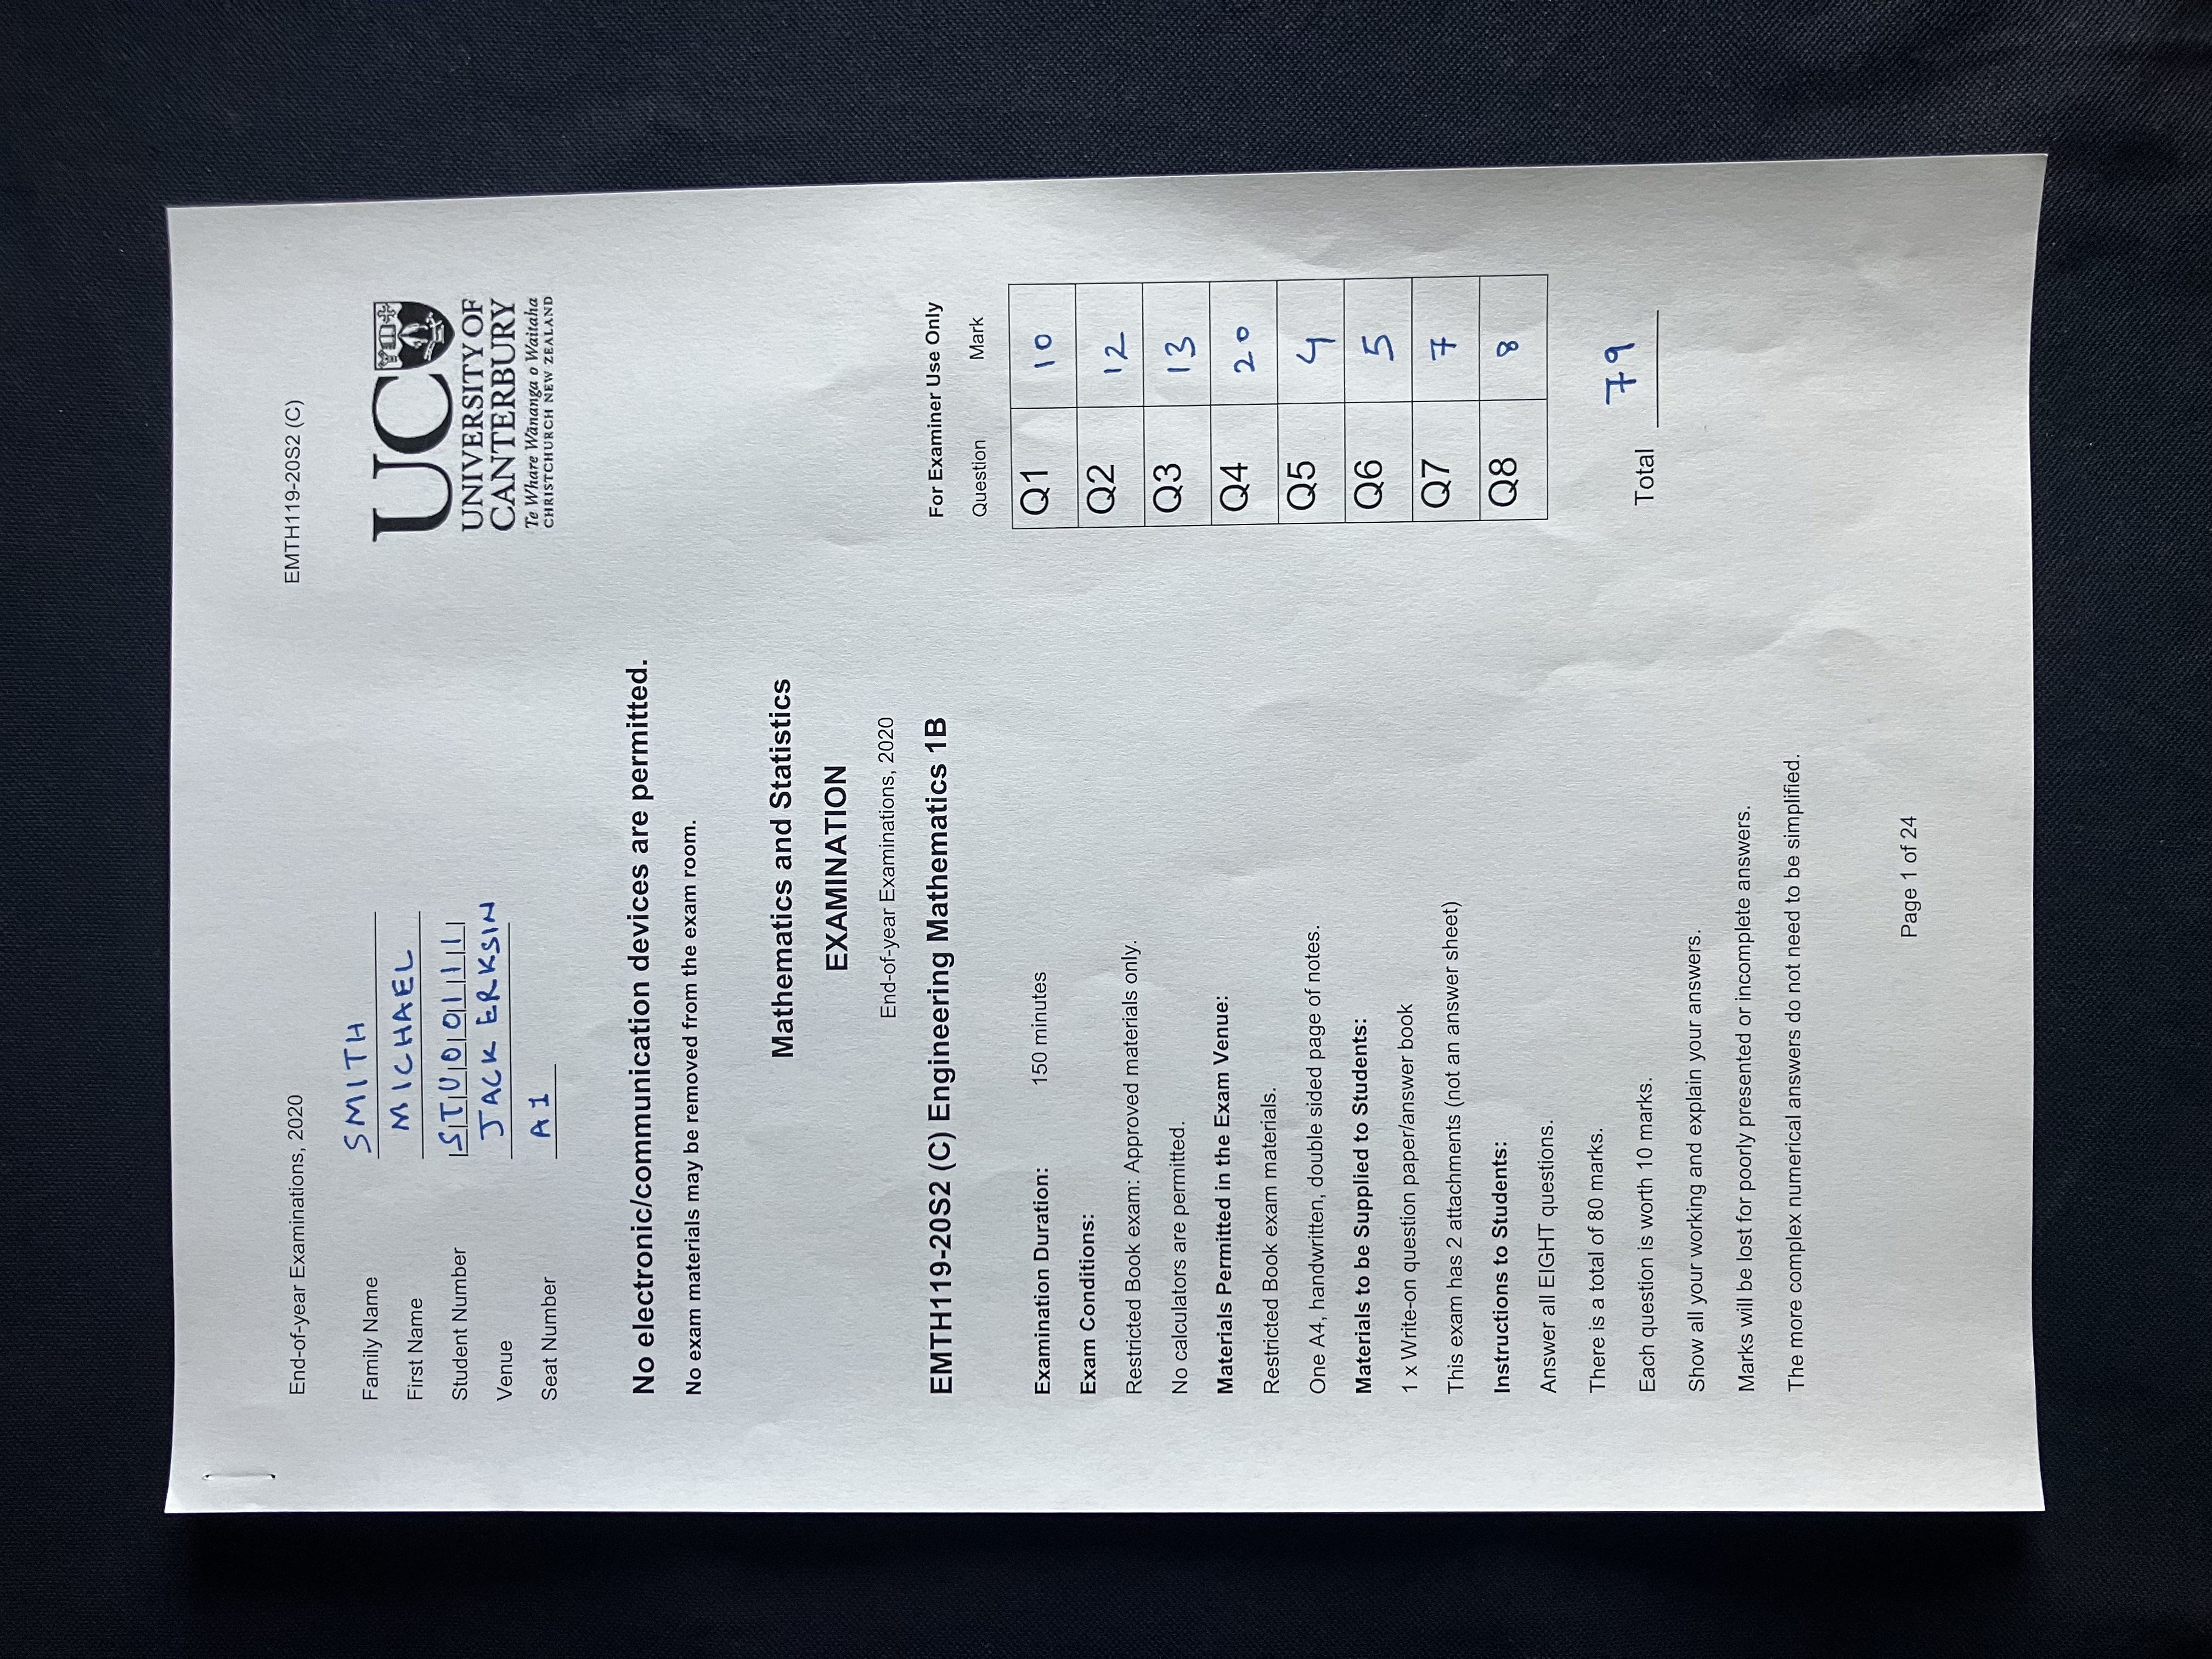 End-of-year Examinations, 2020 EMTH119-20S2 (C)
Family Name SMITH
First Name MICHAEL
Student Number STU00111
Venue JACK ERKSIN
Seat Number A1
UC
UNIVERSITY OF
CANTERBURY
Te Whare Wānanga o Waitaha
CHRISTCHURCH NEW ZEALAND
No electronic/communication devices are permitted.
No exam materials may be removed from the exam room.
Mathematics and Statistics
EXAMINATION
End-of-year Examinations, 2020
EMTH119-20S2 (C) Engineering Mathematics 1B
Examination Duration: 150 minutes
Exam Conditions:
Restricted Book exam: Approved materials only.
No calculators are permitted.
Materials Permitted in the Exam Venue:
Restricted Book exam materials.
One A4, handwritten, double sided page of notes.
Materials to be Supplied to Students:
1 x Write-on question paper/answer book
This exam has 2 attachments (not an answer sheet)
Instructions to Students:
Answer all EIGHT questions.
There is a total of 80 marks.
Each question is worth 10 marks.
Show all your working and explain your answers.
Marks will be lost for poorly presented or incomplete answers.
The more complex numerical answers do not need to be simplified.
For Examiner Use Only
Question Mark
Q1 10
Q2 12
Q3 13
Q4 20
Q5 4
Q6 5
Q7 7
Q8 8
Total 79
Page 1 of 24